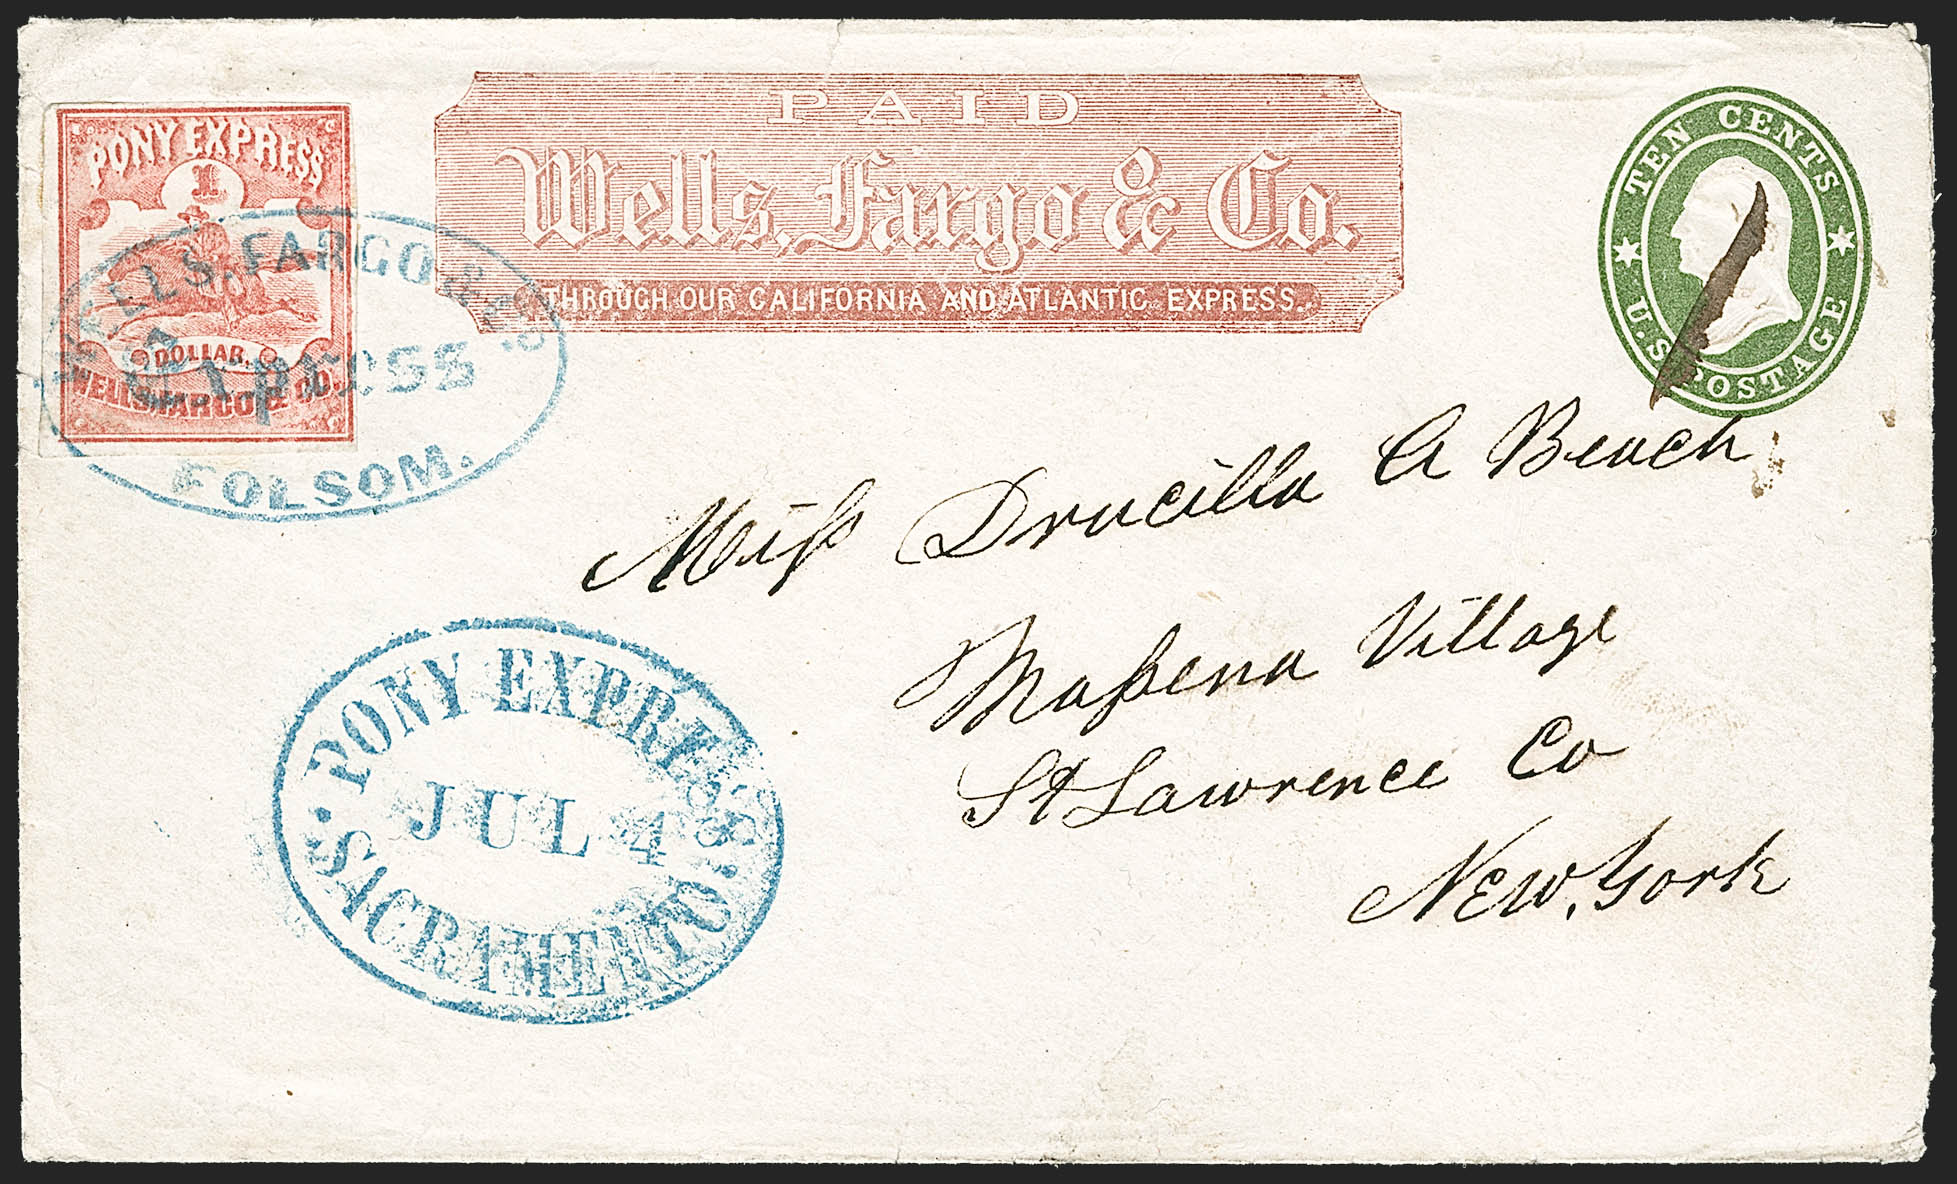 PONY EXPRESS
1
DOLLAR.
WELLS, FARGO & CO.
WELLS, FARGO & CO.
Express
FOLSOM.
PAID
Wells, Fargo & Co.
THROUGH OUR CALIFORNIA AND ATLANTIC EXPRESS.
TEN CENTS
U.S. POSTAGE
Miſs Drucilla A Beach
Maſsena Village
St Lawrence Co
New, York
PONY EXPRESS
JUL 4
SACRAMENTO